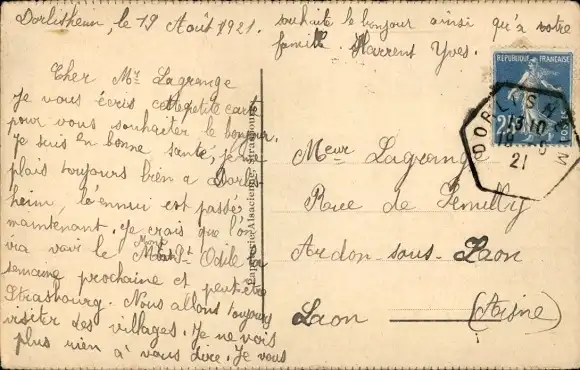 Dorlisheim, le 19 Août 1921.
Cher Mr Lagrange
Je vous écris cette petite carte
pour vous souhaiter le bonjour.
Je suis en bonne santé, je me
plais toujours bien a Dorlis
heim, l'ennui est passé
maintenant. Je crois que l'on
ira voir le Mont St Odile la
semaine prochaine et peut-être
Strasbourg. Nous allons toujours
visiter des villages. Je ne vois
plus rien à vous dire. Je vous
souhaite le bonjour ainsi qu'à votre
famille Harrent Yves.
Papeterie Alsacienne, Strasbourg
RÉPUBLIQUE FRANÇAISE
POSTES
DORLISHEIM
13 10
21
Meur Lagrange
Rue de Semilly
Ardon-sous-Laon
Laon (Aisne)